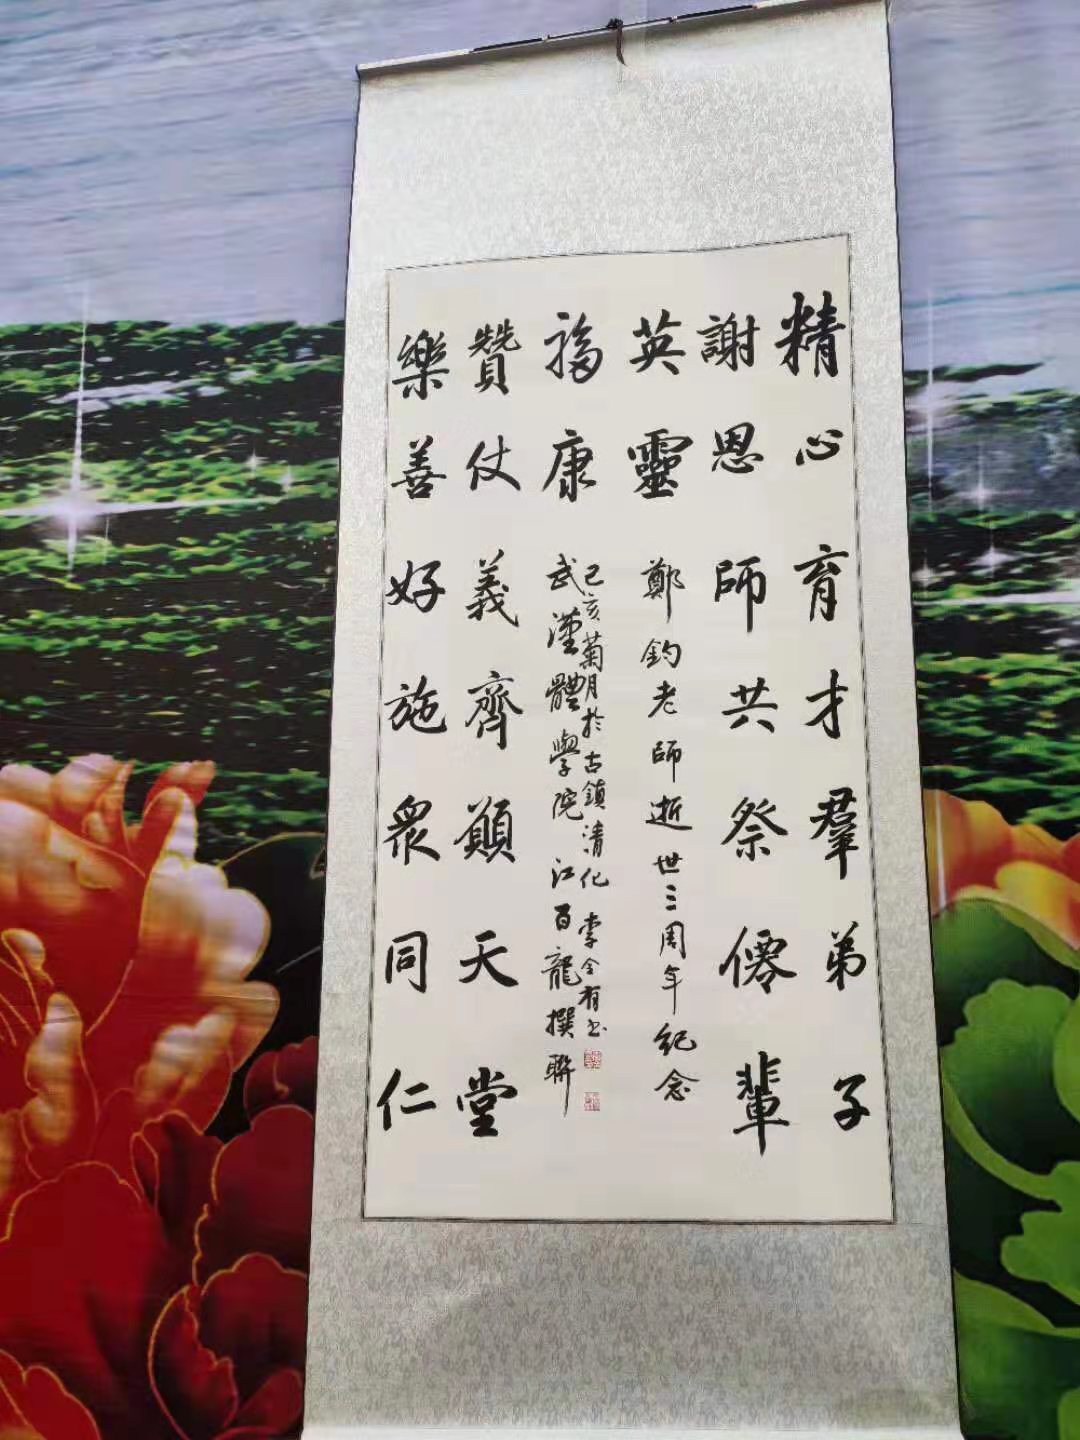 精心育才羣弟子
謝恩師共祭僊輩
英靈
鄭鈞老師逝世三周年紀念
己亥菊月於古鎮清化 李全有书
福康
武漢體學院 江百龍撰聯
贊仗義齊願天堂
樂善好施衆同仁